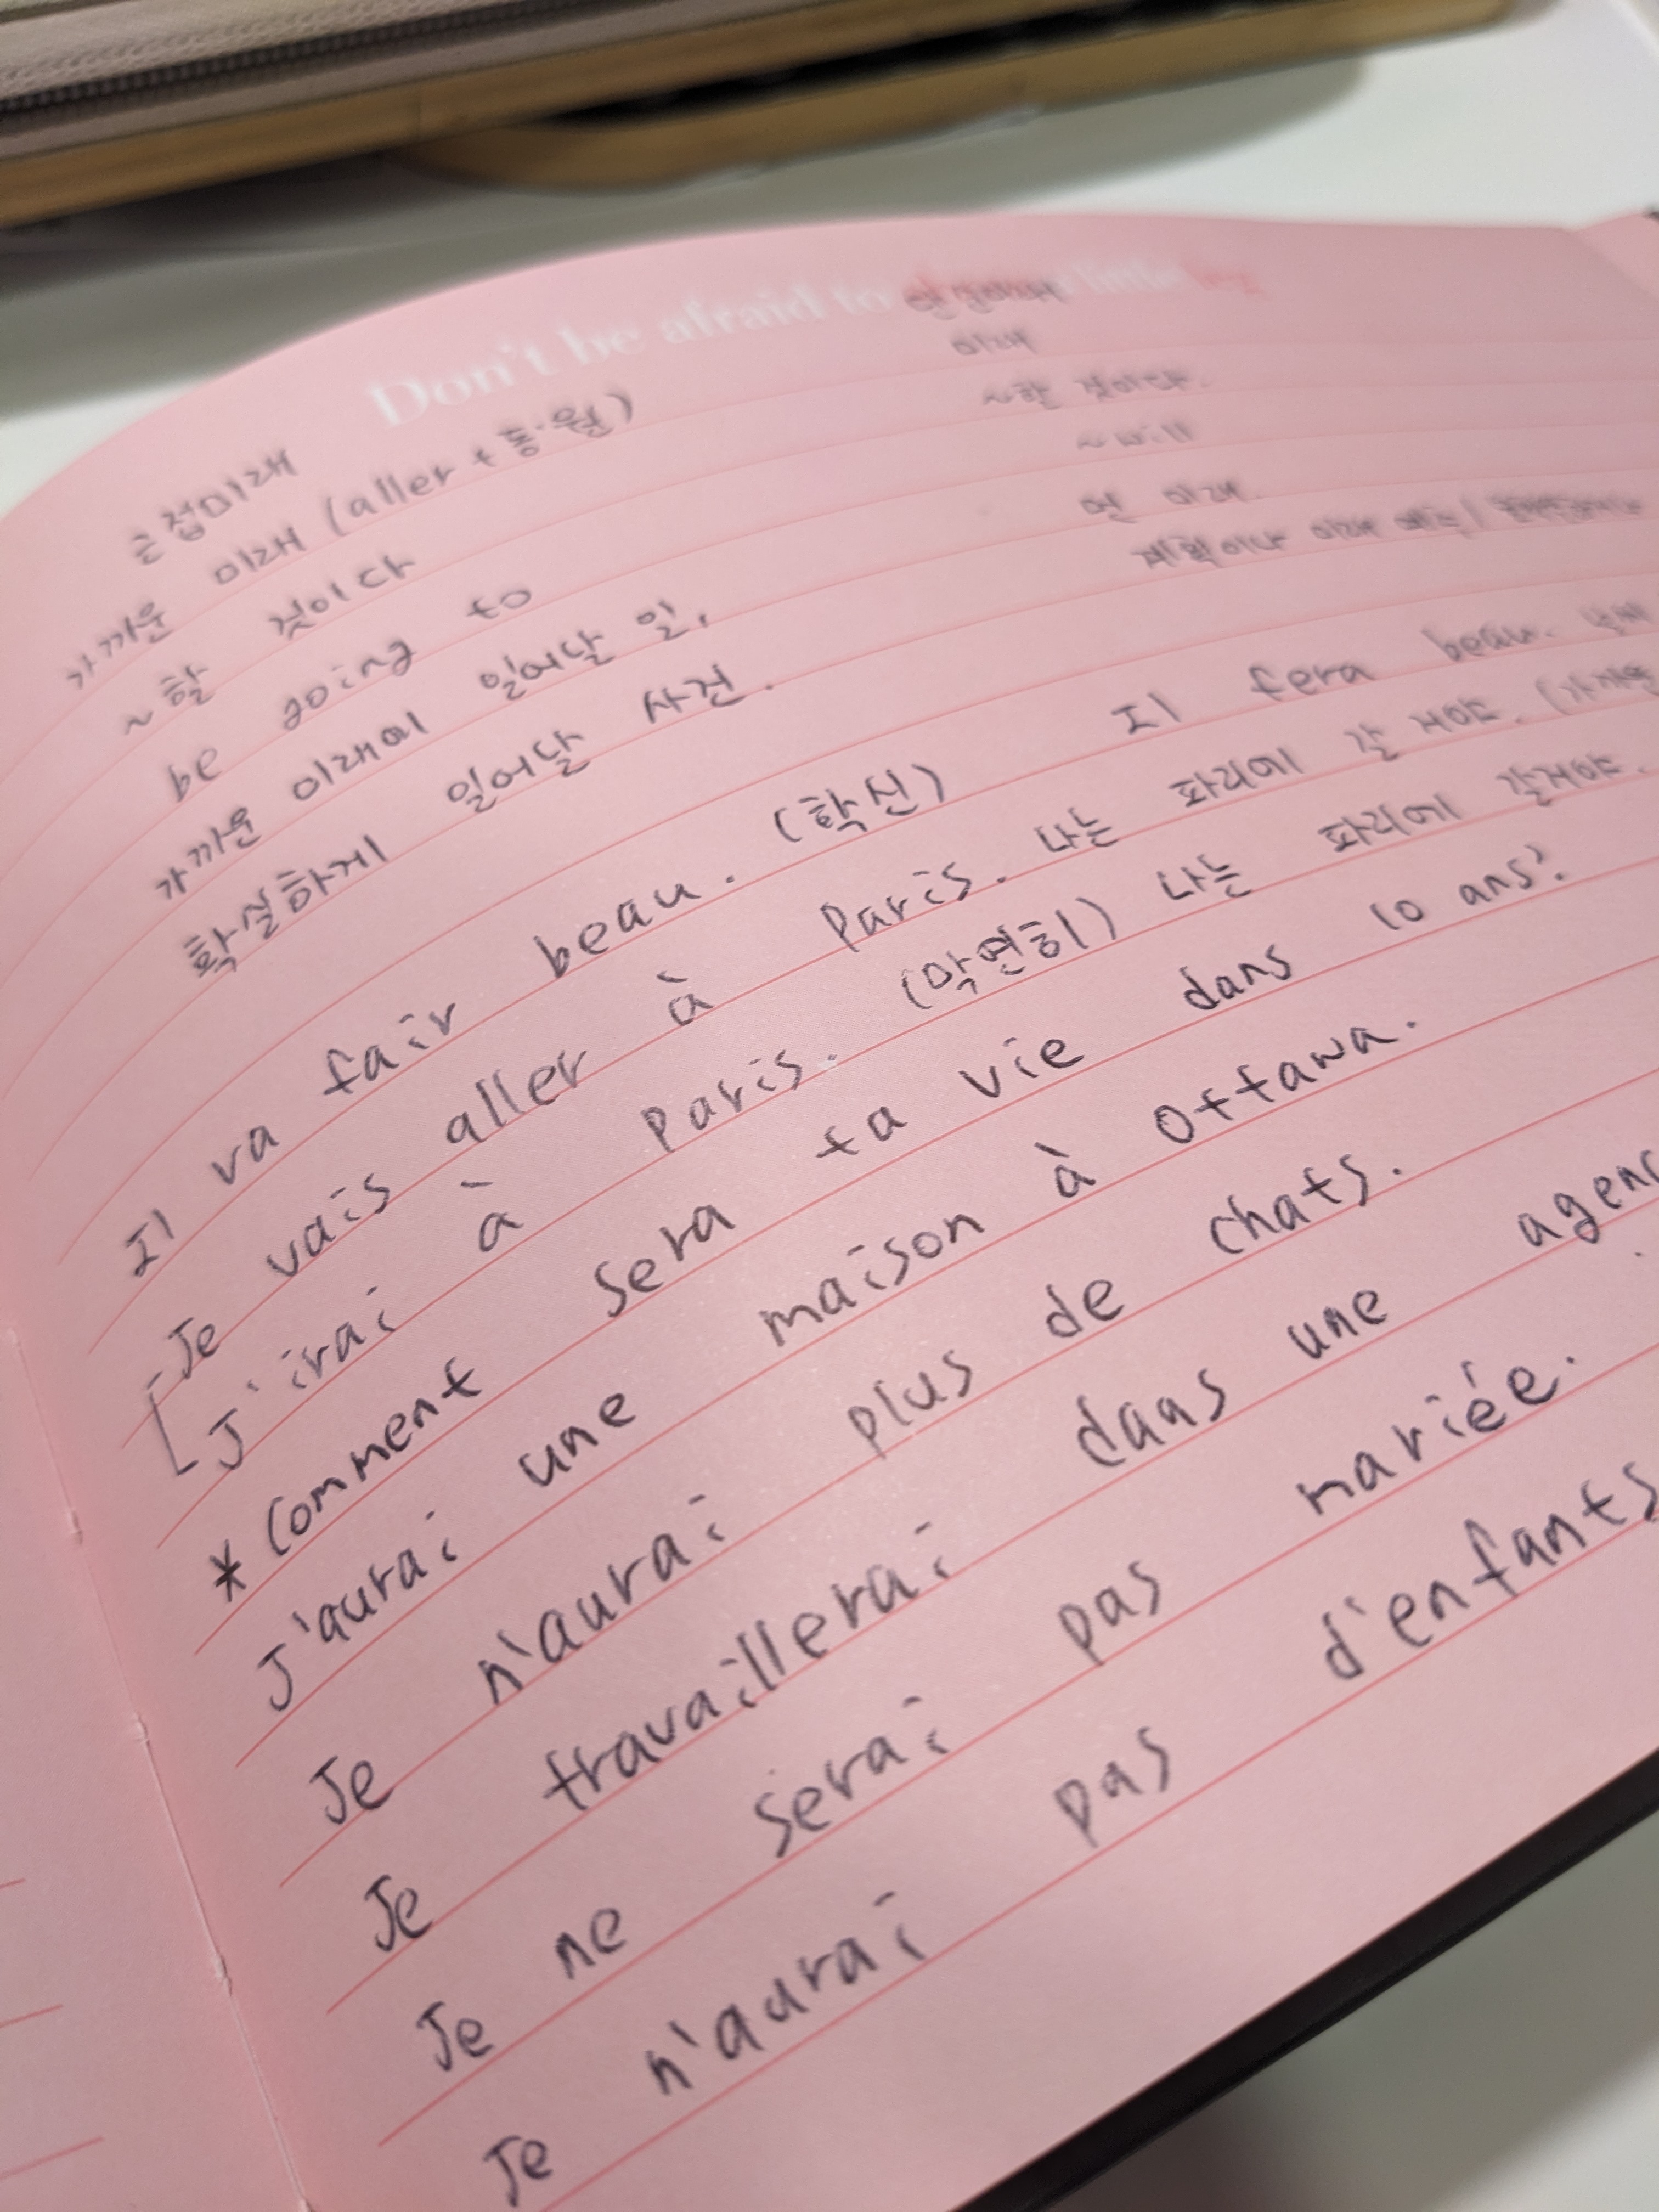 Don't be afraid to little
근접미래
미래
가까운 미래 (aller + 동·원)
~할 것이다.
~ 할 것이다
~ will
be going to
먼 미래.
가까운 미래에 일어날 일,
계획이나 미래 예측
확실하게 일어날 사건.
Il va fair beau. (확신) Il fera beau. 날씨
Je vais aller à Paris. 나는 파리에 갈 거야. (가까운
J'irai à Paris. (막연히) 나는 파리에 갈거야.
* Comment sera ta vie dans 10 ans?
J'aurai une maison à Ottawa.
Je n'aurai plus de chats.
Je travaillerai dans une agenc
Je ne serai pas mariée.
Je n'aurai pas d'enfants